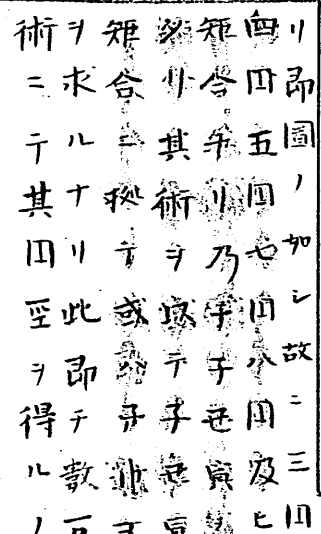 リ即圖ノ如シ故ニ三円
四円五円七円八円及ヒ
矩合リ乃チ子丑寅
リ其術ヲ以テ子丑寅
矩合ニ拠テ或ハ子
ヲ求ルナリ此即チ数
術ニテ其円径ヲ得ルノ